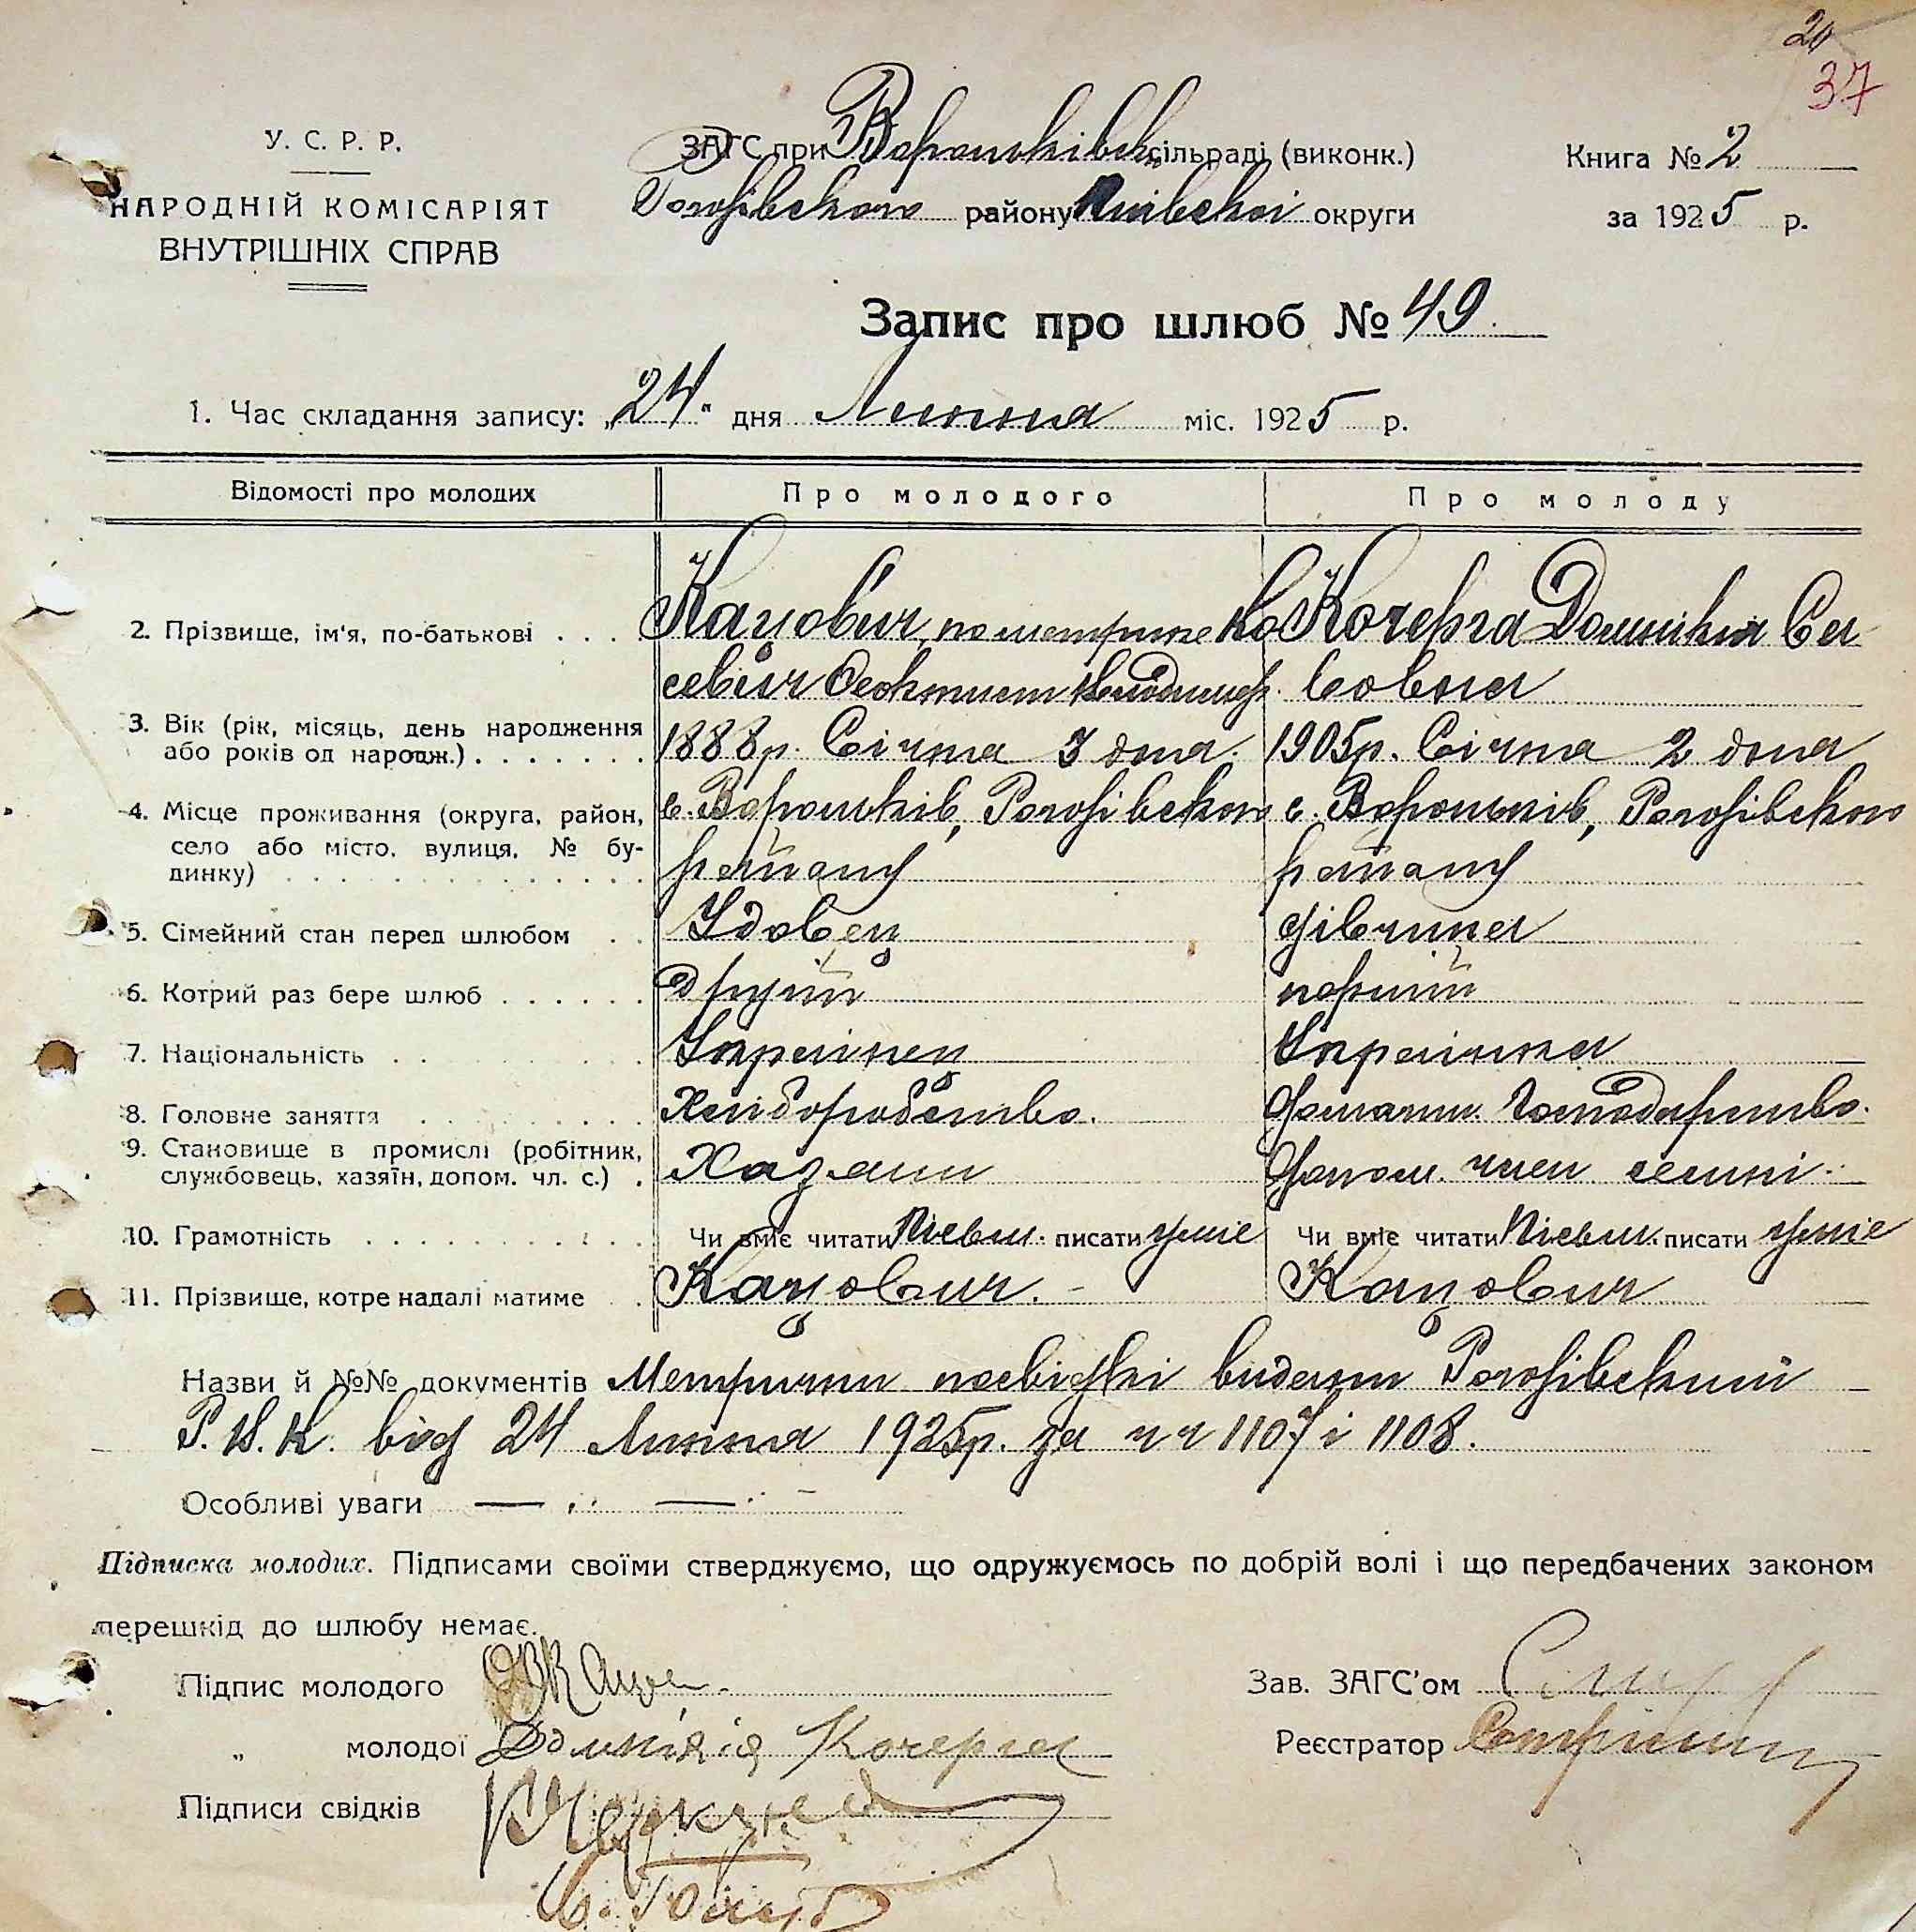 20
37
У. С. Р. Р.
НАРОДНІЙ КОМІСАРІЯТ
ВНУТРІШНІХ СПРАВ
ЗАГС при Вороньківськ. сільраді (виконк.)
Рогозівського району Київської округи
Книга № 2
за 1925 р.
Запис про шлюб № 49
1. Час складання запису: „24“ дня Липня міс. 1925 р.
Відомості про молодих Про молодого Про молоду
2. Прізвище, ім'я, по-батькові . . . Кацович, по метрике Ко Кочерга Домнікія Са
севич Феоктист Володимир. вовна
3. Вік (рік, місяць, день народження
або років од народж.) . . . . . . . 1888р. Січня 3 дня. 1905р. Січня 2 дня
4. Місце проживання (округа, район, с. Вороньків, Рогозівського с. Вороньків, Рогозівського
село або місто, вулиця, № бу-
динку) району району
5. Сімейний стан перед шлюбом . . Удовец дівчина
6. Котрий раз бере шлюб . . . . . . другий перший
7. Національність . . Українец Українка
8. Головне заняття Хліборобство. Домашн. Господарство.
9. Становище в промислі (робітник,
службовець, хазяїн, допом. чл. с.) . Хазяин Допом. член семні.
10. Грамотність Чи вміє читати Письм. писати уміє Чи вміє читати Письм. писати уміє
11. Прізвище, котре надалі матиме . . Кацович. Кацович
Назви й №№ документів Метричні посвідкі видани Рогозівський
Р.В.К. від 24 Липня 1925р. за чч 1107 і 1108.
Особливі уваги
Підписка молодих. Підписами своїми стверджуємо, що одружуємось по добрій волі і що передбачених законом
перешкід до шлюбу немає.
Підпис молодого
Зав. ЗАГС'ом
„ молодої Домнікія Кочерга
Реєстратор
Підписи свідків